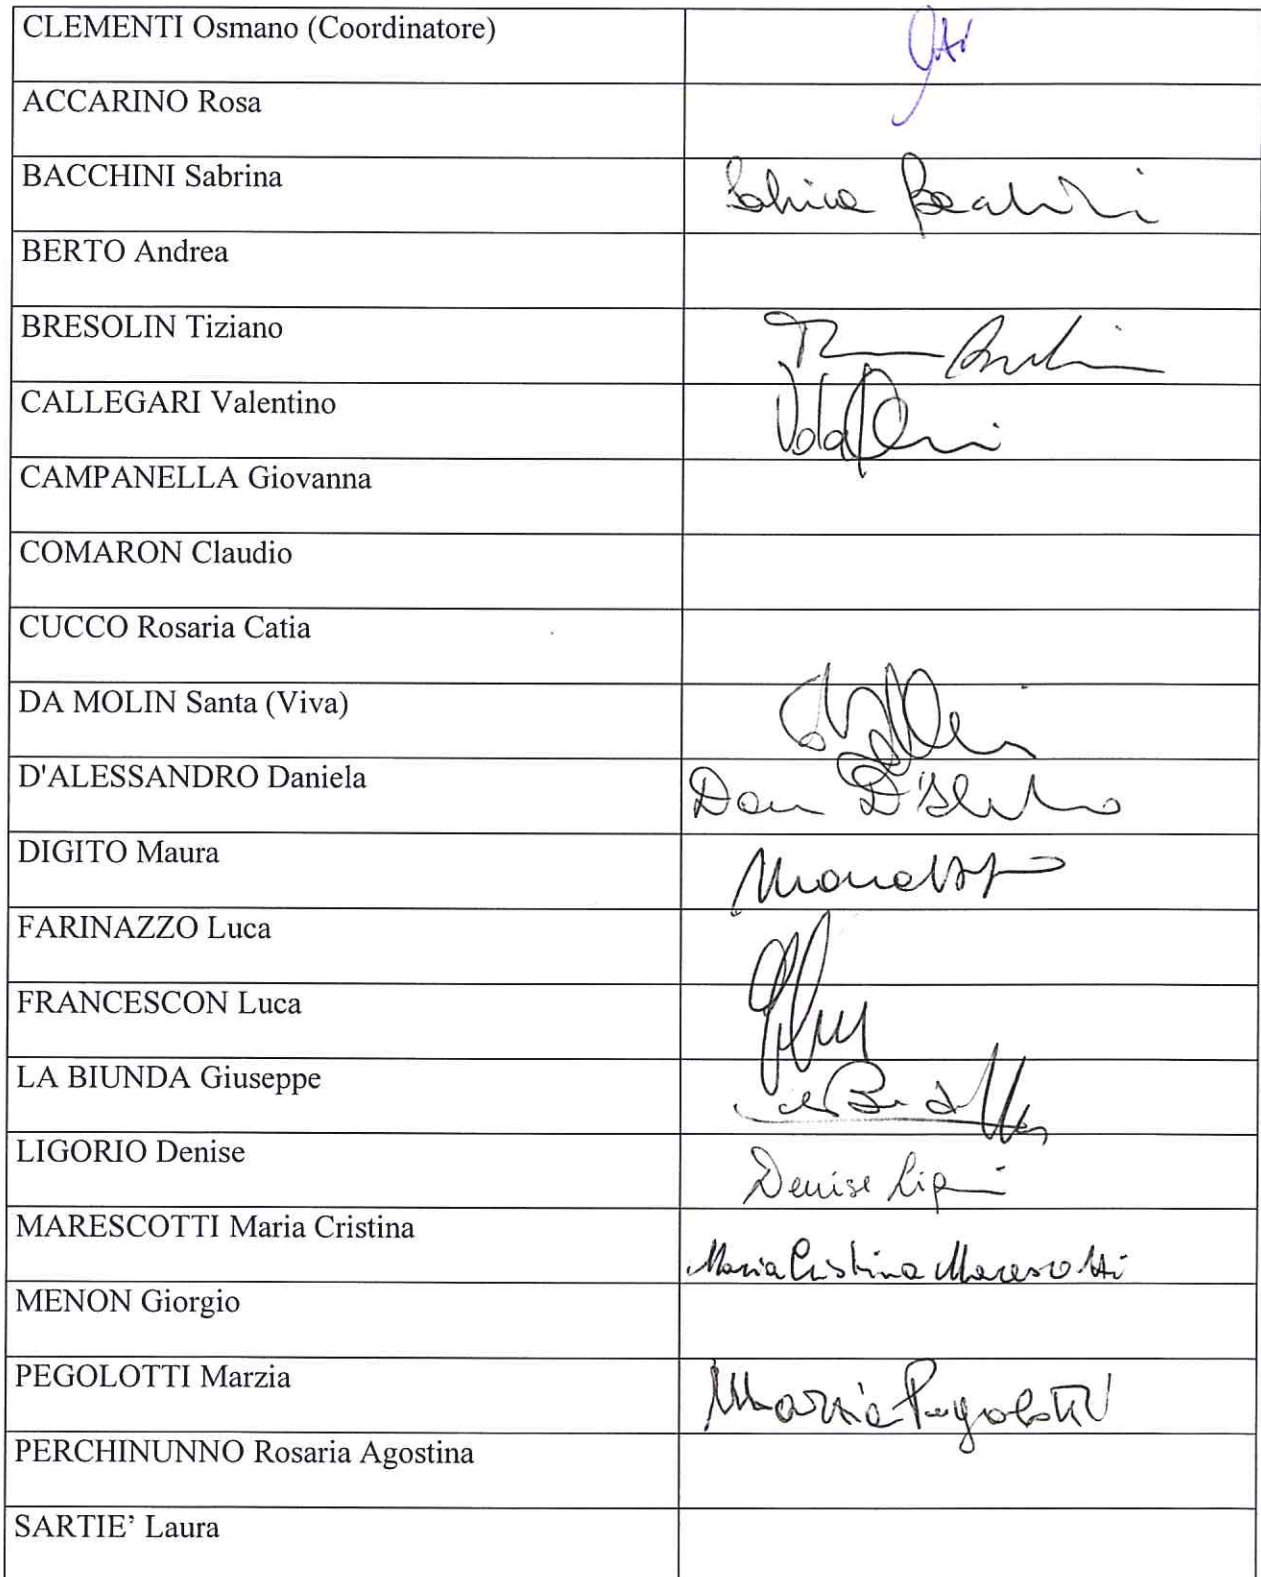 CLEMENTI Osmano (Coordinatore)
ACCARINO Rosa
BACCHINI Sabrina
BERTO Andrea
BRESOLIN Tiziano
CALLEGARI Valentino
CAMPANELLA Giovanna
COMARON Claudio
CUCCO Rosaria Catia
DA MOLIN Santa (Viva)
D'ALESSANDRO Daniela
DIGITO Maura
FARINAZZO Luca
FRANCESCON Luca
LA BIUNDA Giuseppe
LIGORIO Denise
Denise
MARESCOTTI Maria Cristina
Maria Cristina Marescotti
MENON Giorgio
PEGOLOTTI Marzia
Marzia Pegolotti
PERCHINUNNO Rosaria Agostina
SARTIE’ Laura